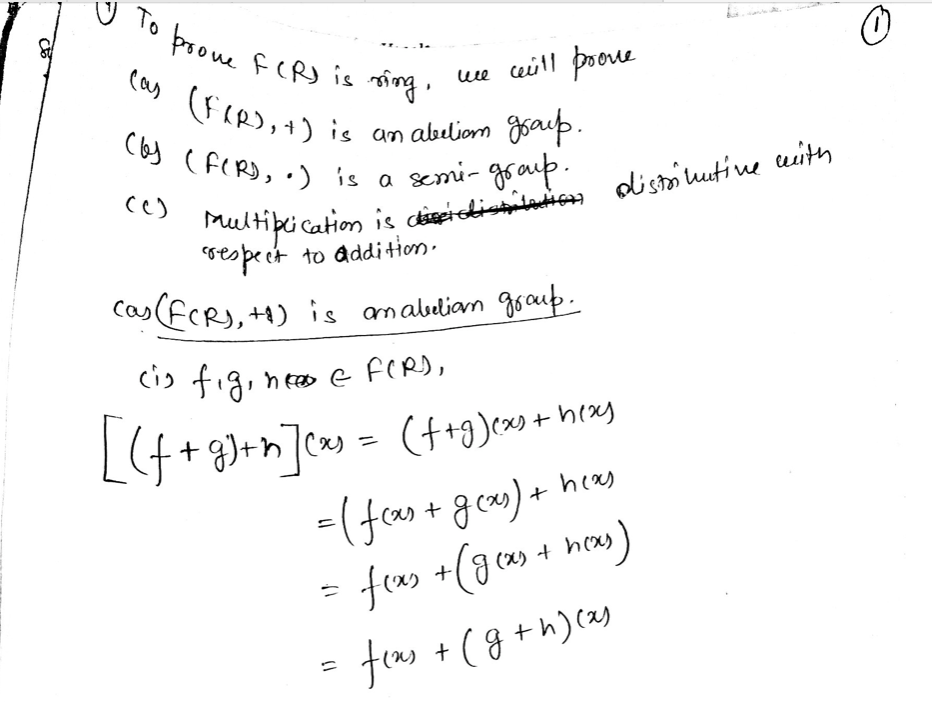 (1) To prove F(R) is ring, we will prove
①
(a) (F(R), +) is an abelian group.
(b) (F(R), ·) is a semi-group.
(c) Multiplication is distributive with
respect to addition.
(a) (F(R), +) is an abelian group.
(i) f, g, h ∈ F(R),
[(f + g)+h](x) = (f+g)(x) + h(x)
= (f(x) + g(x)) + h(x)
= f(x) + (g(x) + h(x))
= f(x) + (g + h)(x)